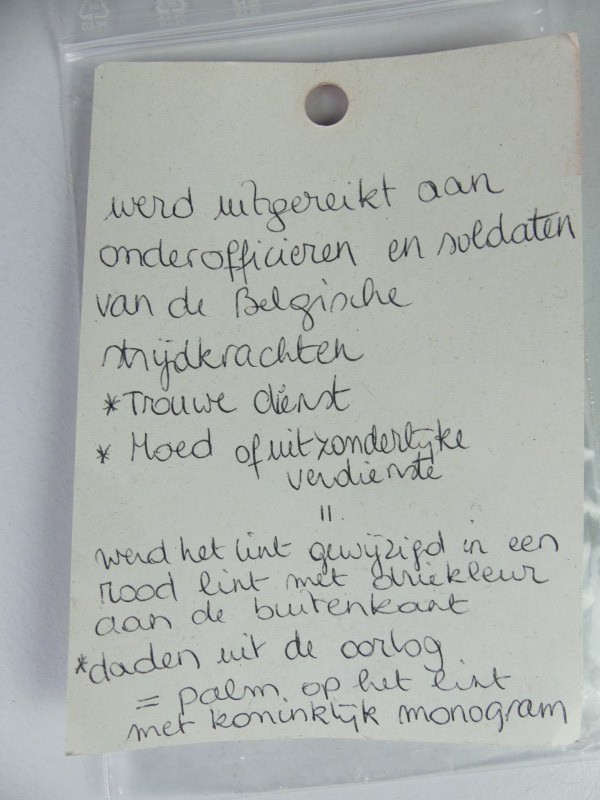 werd uitgereikt aan
onderofficieren en soldaten
van de Belgische
strijdkrachten
* Trouwe dienst
* Moed of uitzonderlijke
verdienste
=
werd het lint gewijzigd in een
rood lint met driekleur
aan de buitenkant
* daden uit de oorlog
= palm op het lint
met koninklijk monogram